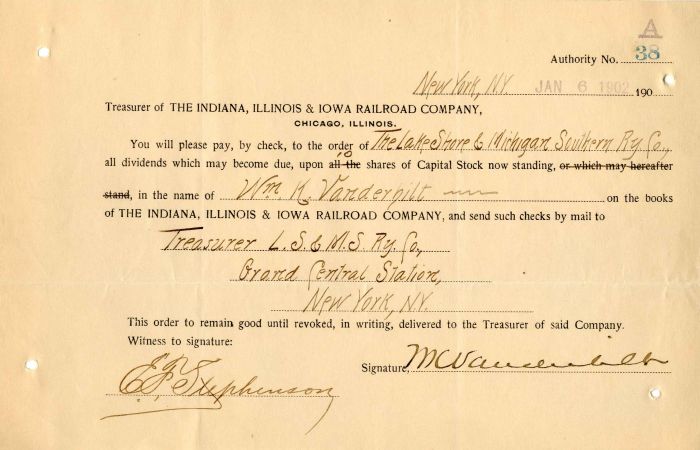 A
Authority No. 38
New York, N.Y. JAN 6 1902 190
Treasurer of THE INDIANA, ILLINOIS & IOWA RAILROAD COMPANY,
CHICAGO, ILLINOIS.
You will please pay, by check, to the order of The Lake Shore & Michigan Southern Ry. Co.,
10
all dividends which may become due, upon all the shares of Capital Stock now standing, or which may hereafter
stand, in the name of Wm K. Vanderbilt on the books
of THE INDIANA, ILLINOIS & IOWA RAILROAD COMPANY, and send such checks by mail to
Treasurer L. S. & M. S. Ry. Co.,
Grand Central Station,
New York, N.Y.
This order to remain good until revoked, in writing, delivered to the Treasurer of said Company.
Witness to signature:
Signature, WKVanderbilt
E.F. Stephenson